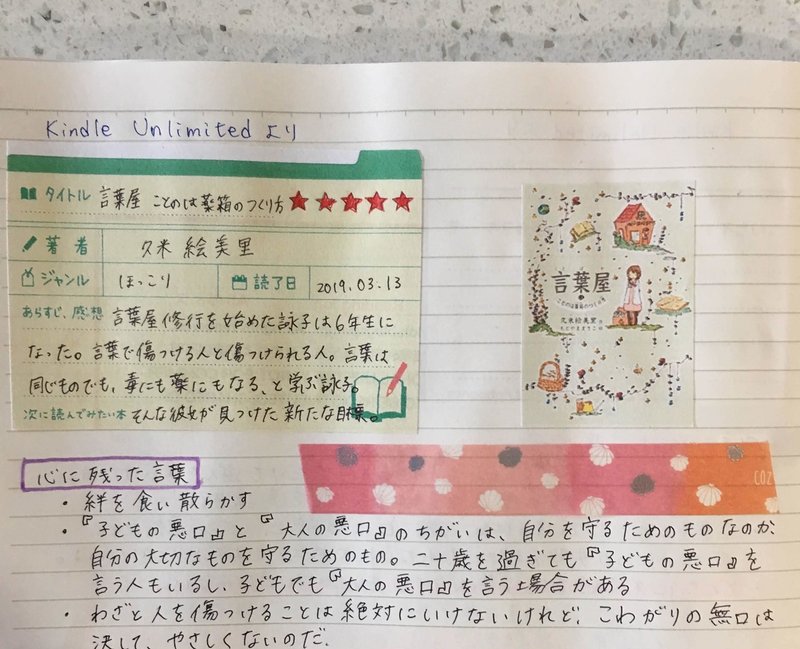 Kindle Unlimited より
タイトル 言葉屋 ことのは薬箱のつくり方 ★★★★★
著者 久米 絵美里
ジャンル ほっこり 読了日 2019.03.13
あらすじ、感想 言葉屋修行を始めた詠子は6年生に
なった。言葉で傷つける人と傷つけられる人。言葉は
同じものでも、毒にも薬にもなる、と学ぶ詠子。
次に読んでみたい本 そんな彼女が見つけた新たな目標。
言葉屋
ことのは薬箱のつくり方
久米絵美里 作
もとやままさこ 絵
心に残った言葉
・絆を食い散らかす
・『子どもの悪口』と『大人の悪口』のちがいは、自分を守るためのものなのか、
自分の大切なものを守るためのもの。二十歳を過ぎても『子どもの悪口』を
言う人もいるし、子どもでも『大人の悪口』を言う場合がある
・わざと人を傷つけることは絶対にいけないけれど、こわがりの無口は
決して、やさしくないのだ.
COZ